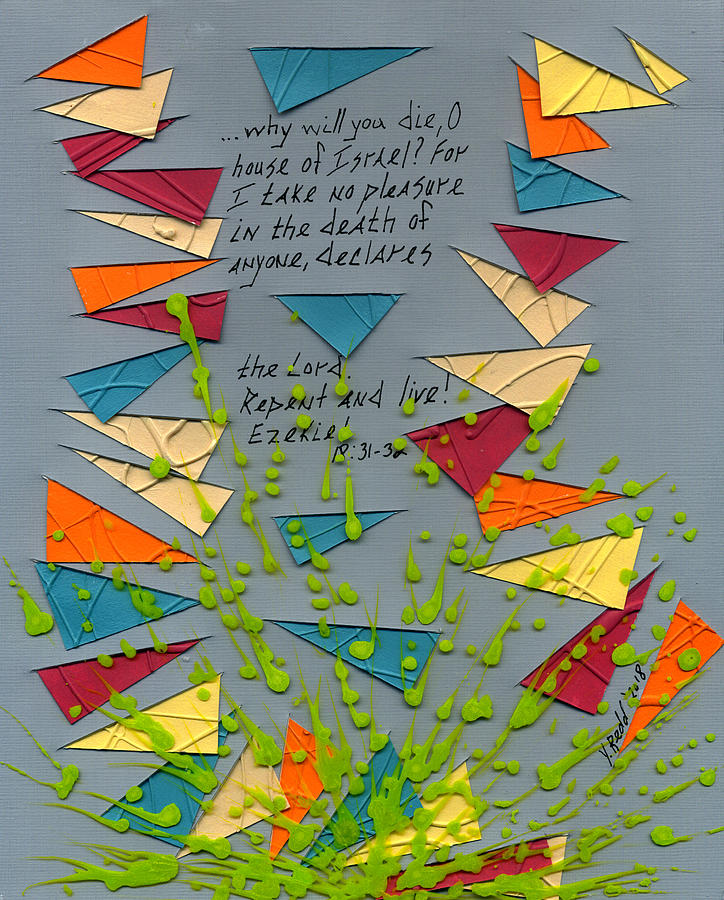 ...why will you die, O
house of Israel? For
I take no pleasure
in the death of
anyone, declares
the Lord.
Repent and live!
Ezekiel
18:31-32
Y. Redd '2018